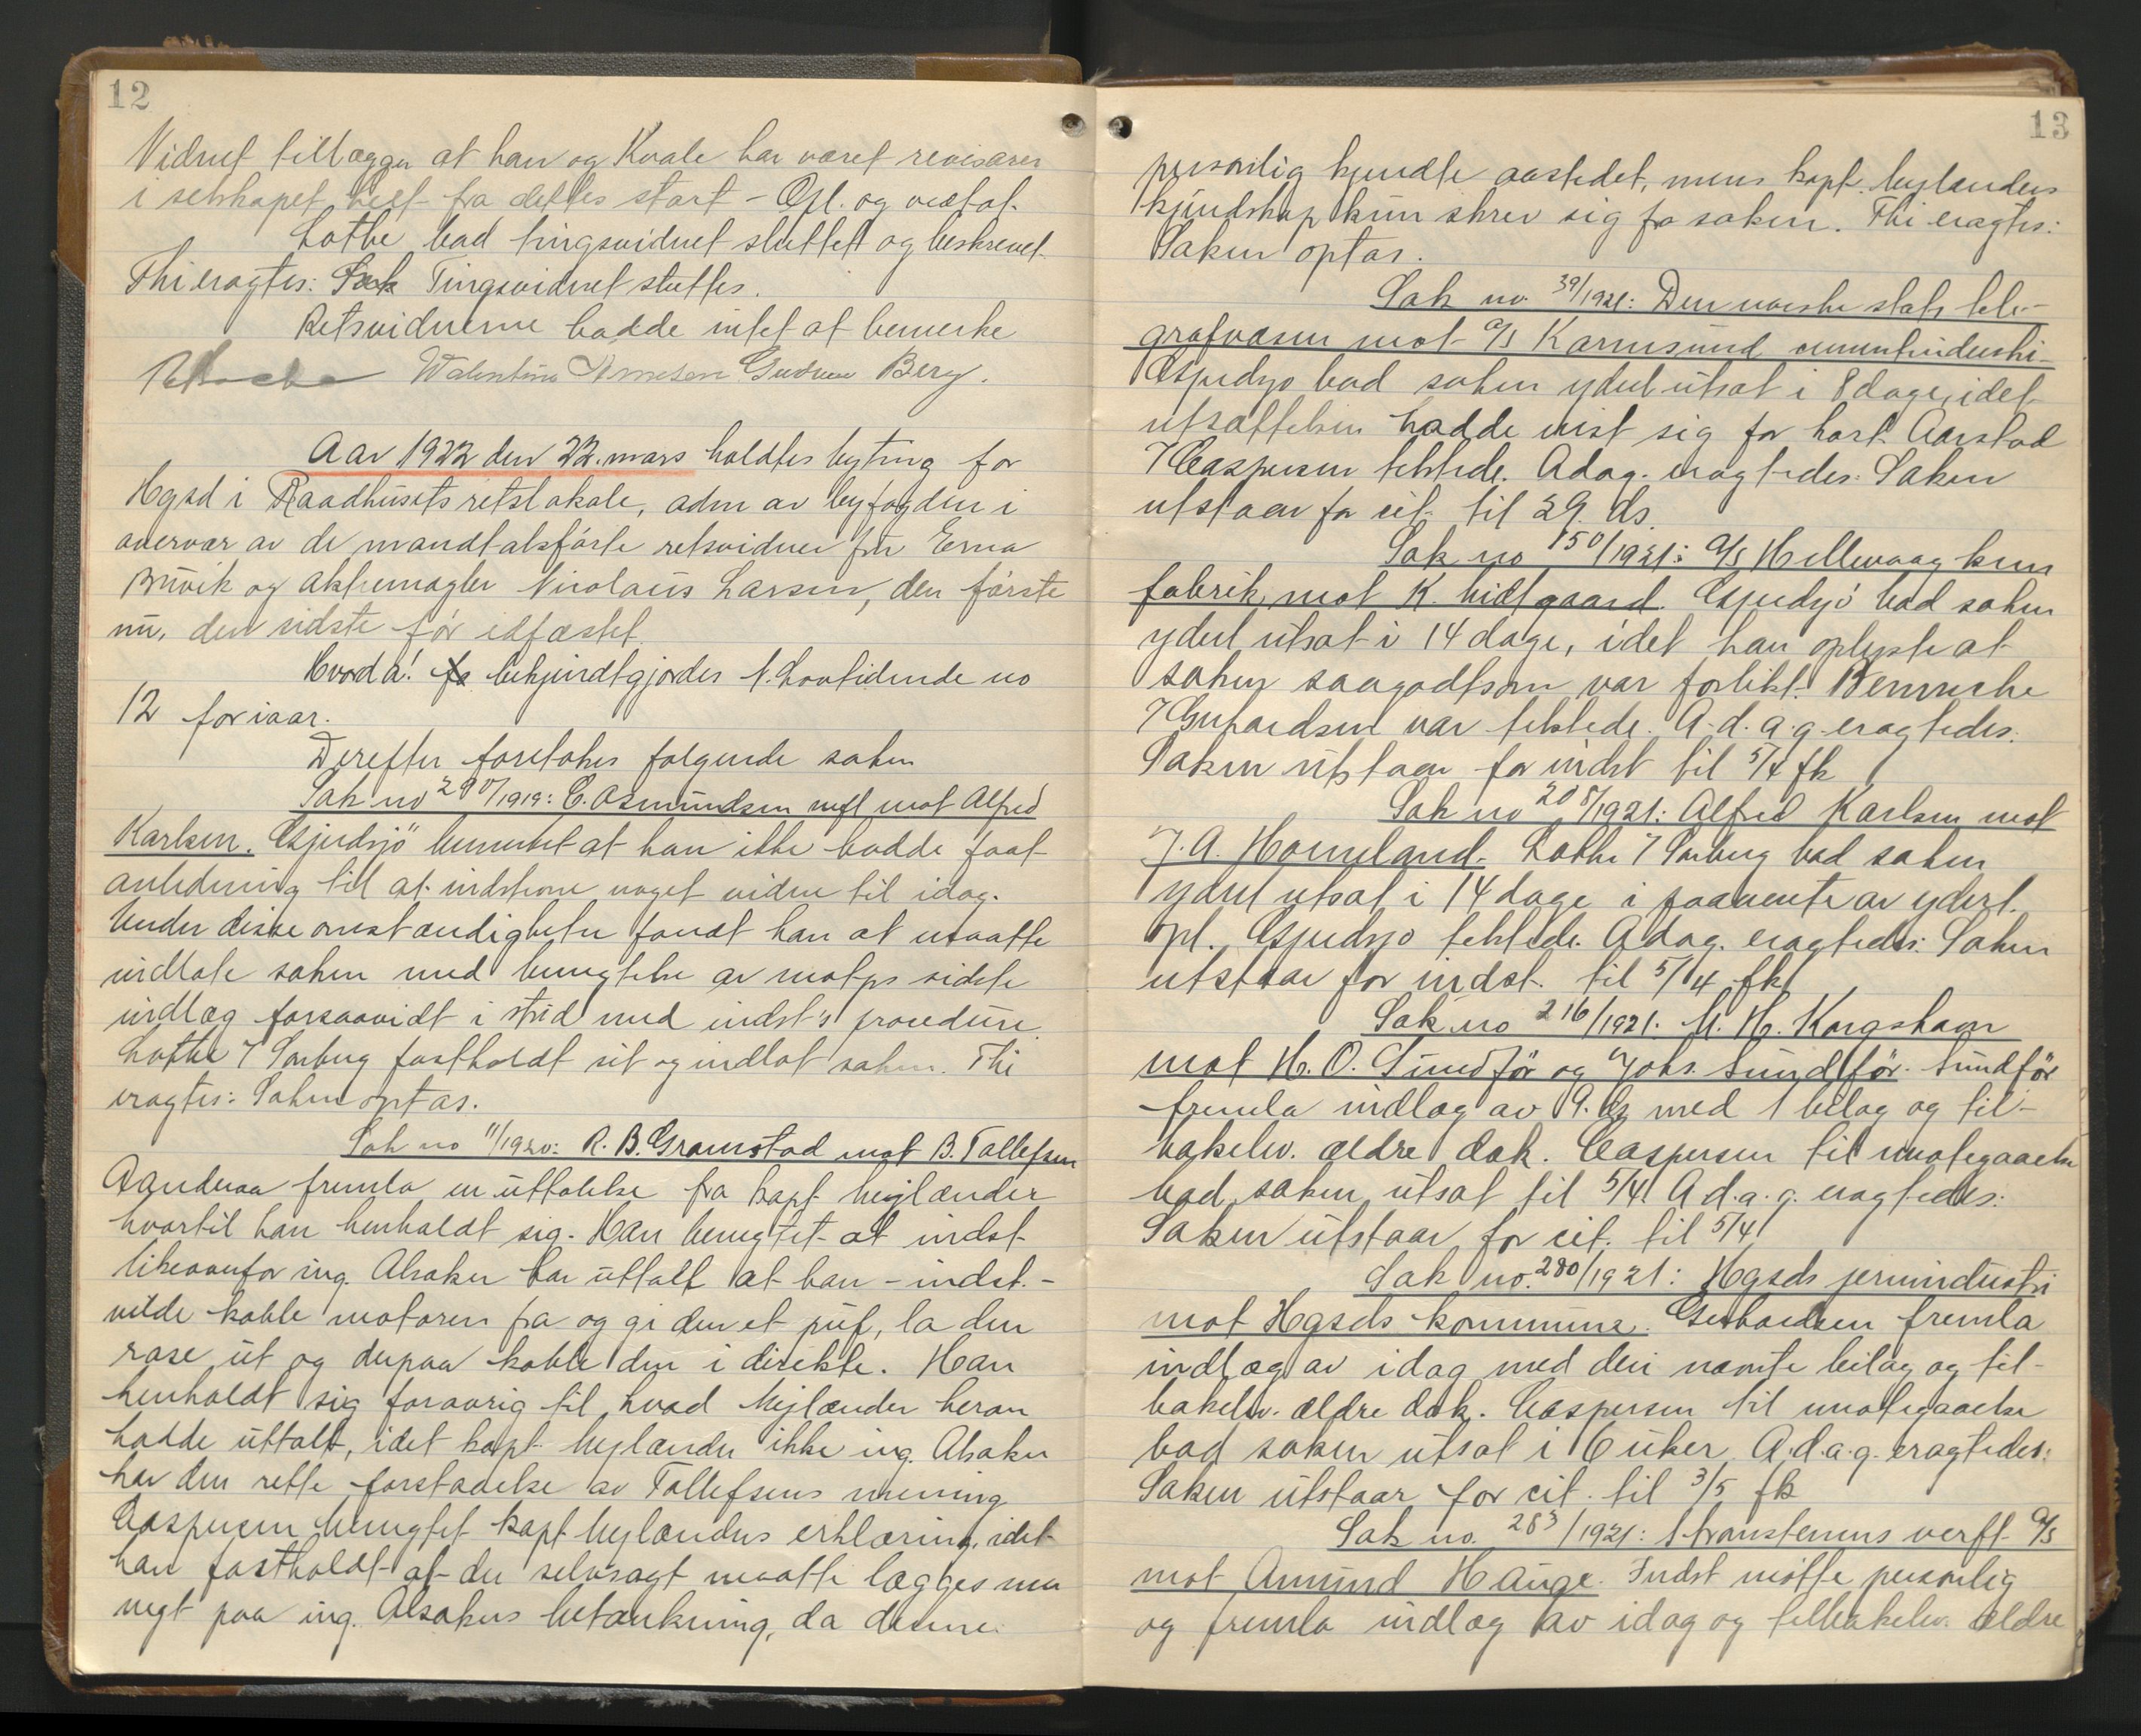 12
Vidnet tillægger at han og Kvale har været revisorer
i selskapet helt fra dettes start - Opl. og vedtat.
Lothe bad tingsvidnet sluttet og beskrevet.
Thi eragtes: Tingsvidnet sluttes.
Retsvidnerne hadde intet at bemerke
Berg.
Aar 1922 den 22. mars holdtes byting for
Hgsd i Raadhusets retslokale, adm av byfogden i
overvær av de mandtalsførte retsvidner fru Erna
Buvik og aktiemægler Nicolaus Larsen, den første
nu, den sidste før edfæstet.
Hvoda! bekjendtgjordes N. Lovtidende no
12 for iaar.
Derefter foretokes følgende saker
Sak no 290/1919: C. Asmundsen mfl mot Alfred
Karlsen. Espedsjø bemerket at han ikke hadde faat
anledning til at indhente noget videre til idag.
Under disse omstændigheter fandt han at maatte
indlate saken med benegtelse av motps sidste
indlæg forsaavidt i strid med indst's procedure.
Lothe f Sørberg fastholdt sit og indlot saken. Thi
eragtes: Saken optas.
Sak no 11/1920: R. B. Gramstad mot B. Tollefsen
Aandraa fremla en uttalelse fra kapt Mejlænder
hvortil han henholdt sig. Han benegtet at indst
likeoverfor ing. Alsaker har uttalt at han - indst. -
vilde koble motoren fra og gi den et puf, la den
rase ut og derpaa koble den i direkte. Han
henholdt sig forøvrig til hvad Mejlænder herom
hadde uttalt, idet kapt Mejlænder ikke ing. Alsaker
har den rette forstaaelse av Tollefsens mening
Caspersen benegtet kapt Mejlænders erklæring, idet
han fastholdt at der selvsagt maatte lægges mer
vegt paa ing. Alsakers betænkning, da denne
13
personlig kjendte aastedet, mens kapt. Mejlænders
kjendskap kun skrev sig fra saken. Thi eragtes:
Saken optas.
Sak no. 39/1921: Den norske stats tele-
grafvæsen mot A/S Karmsund
Espedsjø bad saken yderl utsat i 8 dage, idet
utsættelsen hadde vist sig for kort. Aarstad
f Caspersen tilstede. Adag. eragtedes: Saken
utstaar for cit. til 29. ds.
Sak no 150/1921: A/S Hellevaag
fabrik mot K. Hidlgaard. Espedsjø bad saken
yderl utsat i 14 dage, idet han oplyste at
saken saagodtsom var forlikt. Bennече
f Gerhardsen var tilstede. A.d.a.g. eragtedes:
Saken utstaar for indst til 5/4 fk
Sak no 208/1921: Alfred Karlsen mot
J. A. Homeland. Lothe f Sørberg bad saken
yderl utsat i 14 dage i paavente av yderl.
opl. Espedsjø tilstede. Adag. eragtedes: Saken
utstaar for indst. til 5/4 fk
Sak no 216/1921. M. H. Kongshavn
mot H. O. Sundfør og Johs. Sundfør. Sundfør
fremla indlæg av 9. ds med 1 bilag og til-
bakelev. ældre dok. Caspersen til imøtegaaelse
bad saken utsat til 5/4 A.d.a.g. eragtedes:
Saken utstaar for cit. til 5/4
Sak no. 280/1921: Hgsds jernindustri
mot Hgsds kommune. Gerhardsen fremla
indlæg av idag med deri nævnte bilag og til-
bakelev. ældre dok. Caspersen til imøtegaaelse
bad saken utsat i 6 uker. A.d.a.g. eragtedes:
Saken utstaar for cit. til 3/5 fk
Sak no. 283/1921: Stranstenens verft A/S
mot Amund Hauge. Indst møtte personlig
og fremla indlæg av idag og tilbakelev. ældre